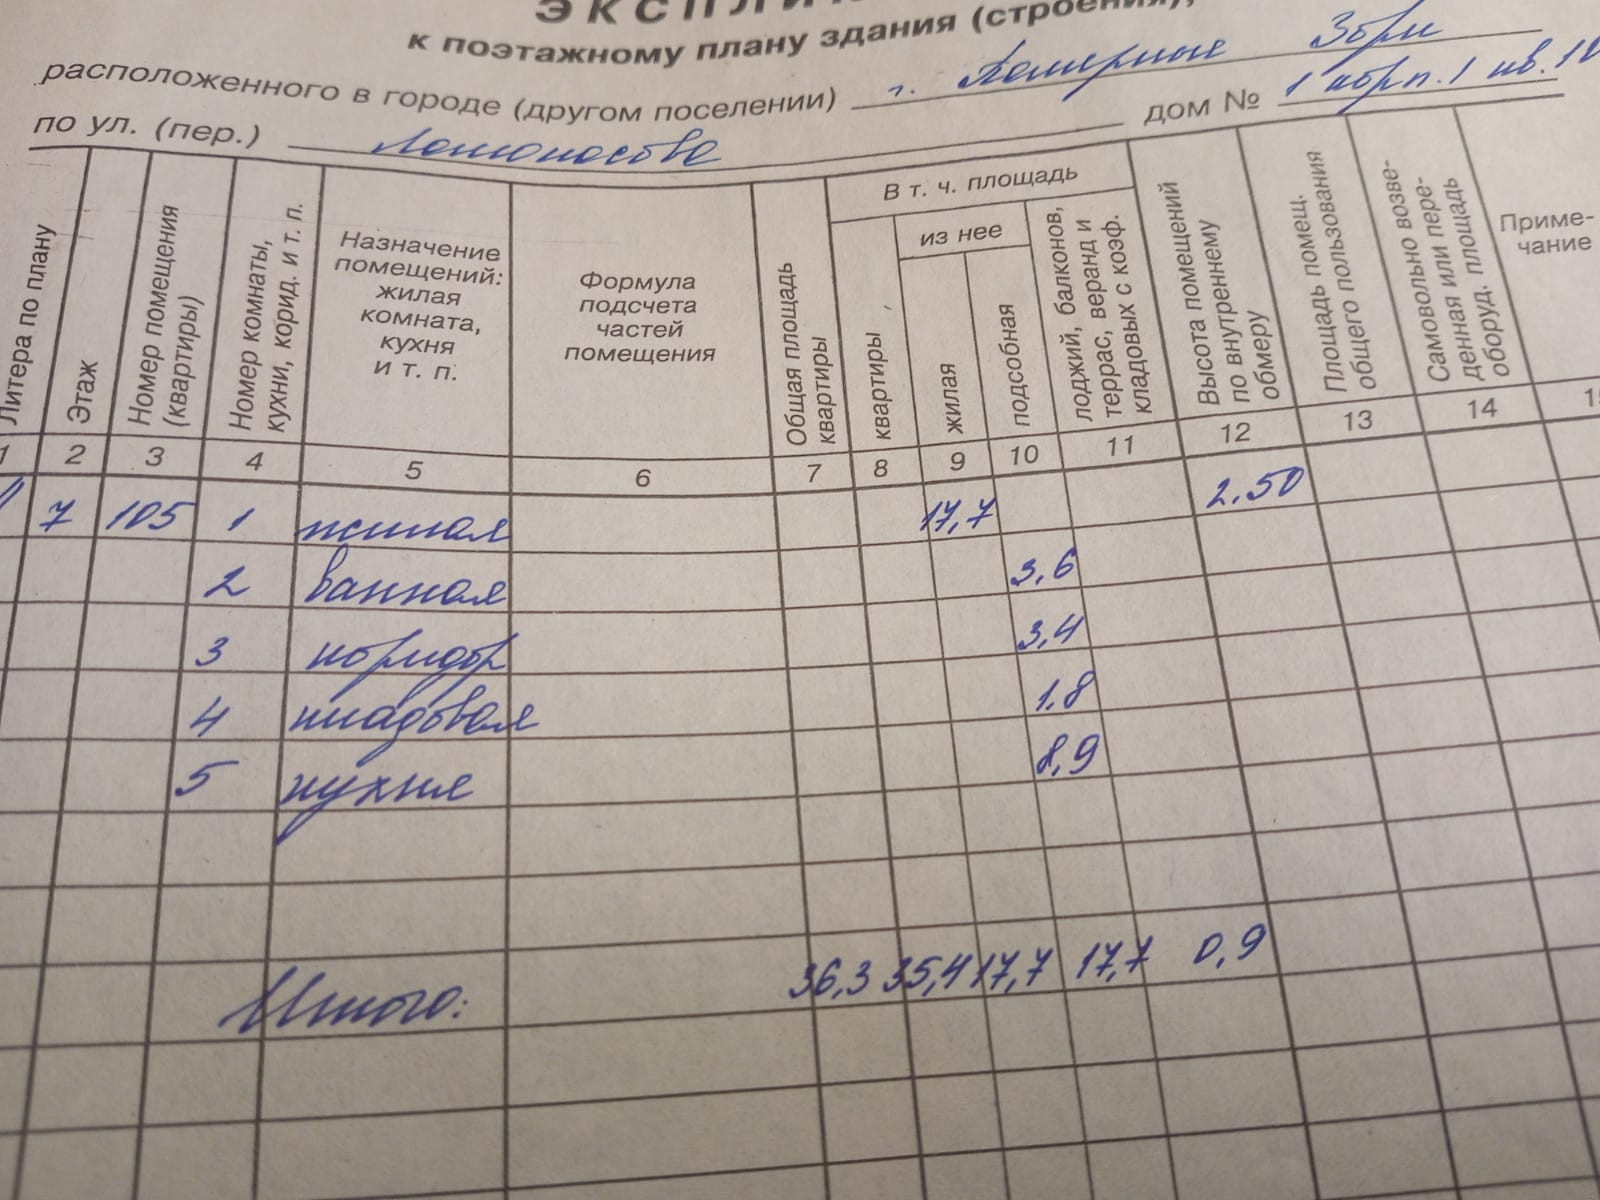 ЭКСПЛИ
к поэтажному плану здания (строения),
расположенного в городе (другом поселении) г. Полярные Зори
по ул. (пер.) Ломоносова дом № 1 корп. 1 кв. 1
Литера по плану
Этаж
Номер помещения (квартиры)
Номер комнаты, кухни, корид. и т. п.
Назначение помещений: жилая комната, кухня и т. п.
Формула подсчета частей помещения
Общая площадь квартиры
В т. ч. площадь
квартиры
из нее
жилая
подсобная
лоджий, балконов, террас, веранд и кладовых с коэф.
Высота помещений по внутреннему обмеру
Площадь помещ. общего пользования
Самовольно возве- денная или пере- оборуд. площадь
Приме- чание
1 2 3 4 5 6 7 8 9 10 11 12 13 14 15
7 105 1 жилая 17,7 2.50
2 ванная 3,6
3 коридор 3,4
4 кладовая 1.8
5 кухня 8,9
Итого: 36,3 35,4 17,7 17,7 0,9